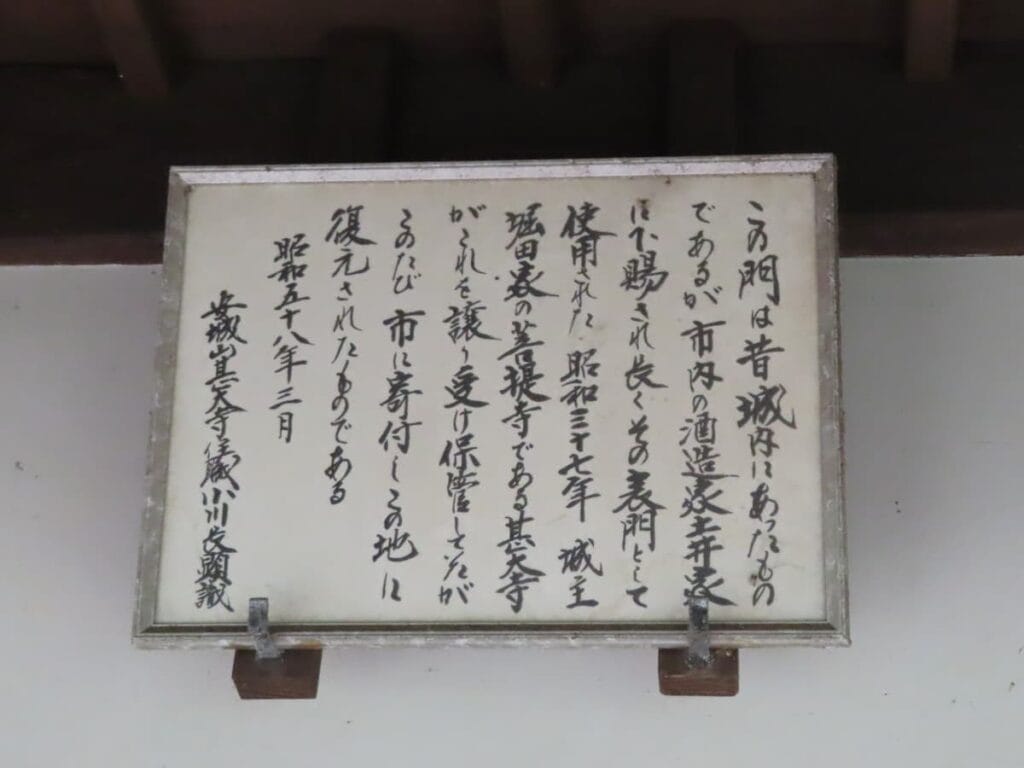 この門は昔城内にあったもの
であるが市内の酒造家土井家
に下賜され長くその表門として
使用された 昭和三十七年 城主
堀田家の菩提寺である甚大寺
がこれを譲り受け保管していたが
このたび市に寄付しこの地に
復元されたものである
昭和五十八年三月
安城山甚大寺住職小川長圓識